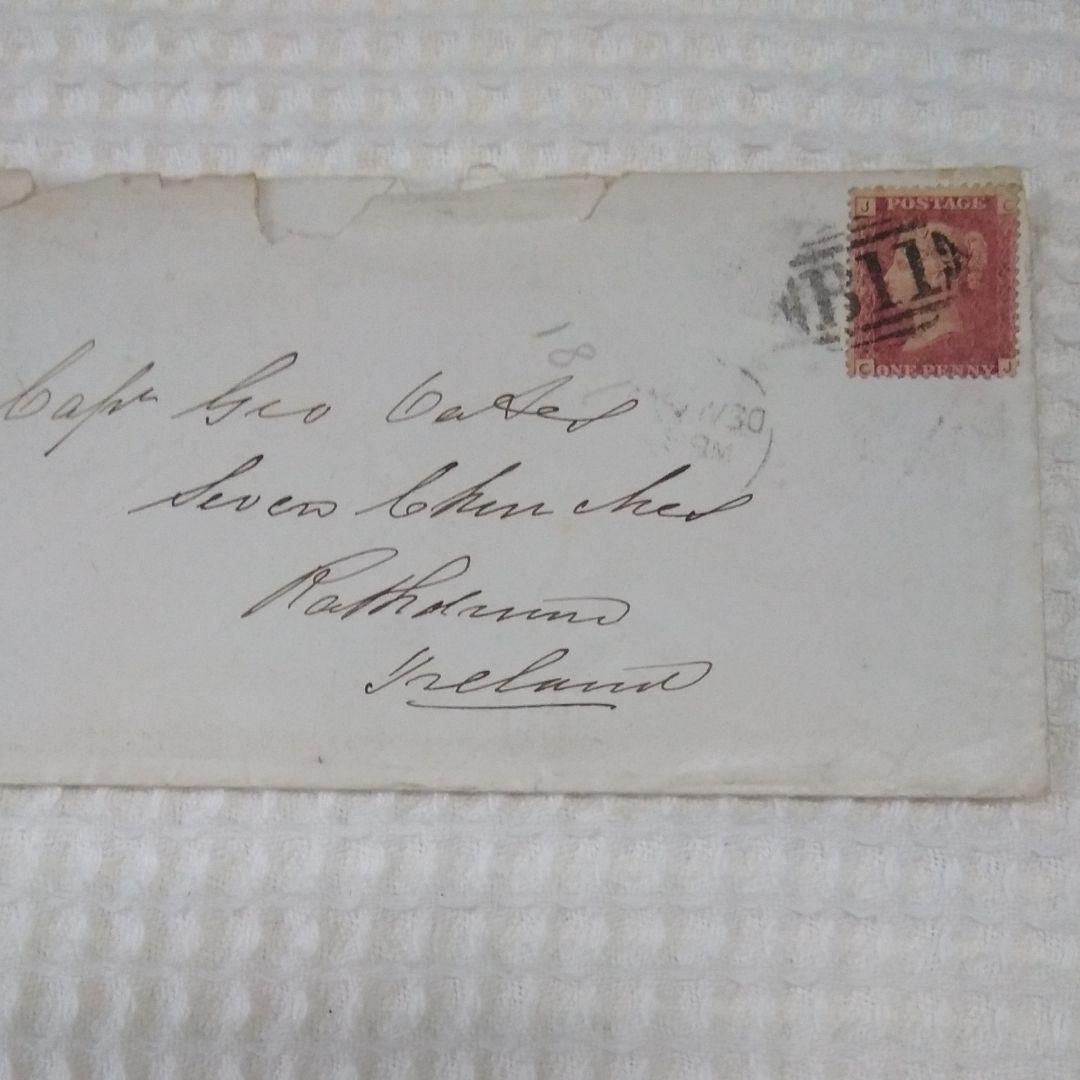 J POSTAGE C
B11
C ONE PENNY J
8
Capn Geo Oates
Seven Churches
Rathdrum
Ireland